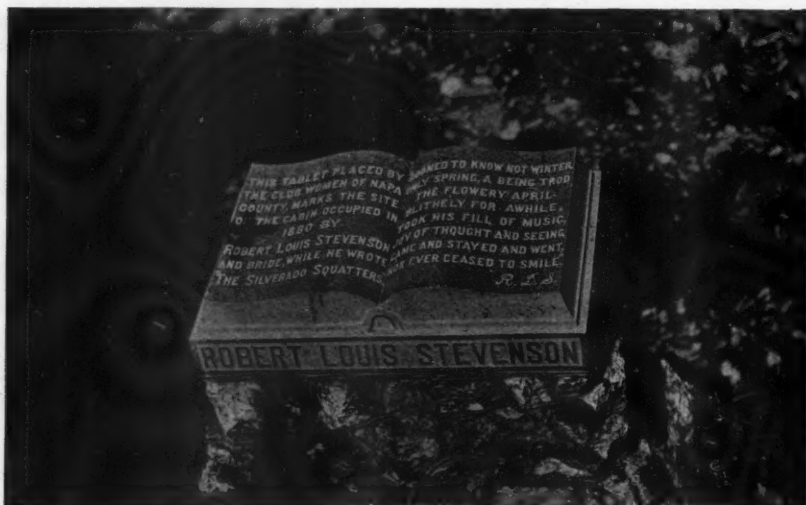 THIS TABLET PLACED BY
THE CLUB WOMEN OF NAPA
COUNTY, MARKS THE SITE
O THE CABIN OCCUPIED IN
1880 BY
ROBERT LOUIS STEVENSON
AND BRIDE, WHILE HE WROTE
THE SILVERADO SQUATTERS.
TO KNOW NOT WINTER,
ONLY SPRING, A BEING TROD
THE FLOWERY APRIL
BLITHELY FOR AWHILE,
TOOK HIS FILL OF MUSIC,
JOY OF THOUGHT AND SEEING,
CAME AND STAYED AND WENT,
NOR EVER CEASED TO SMILE.
R. L. S.
ROBERT LOUIS STEVENSON